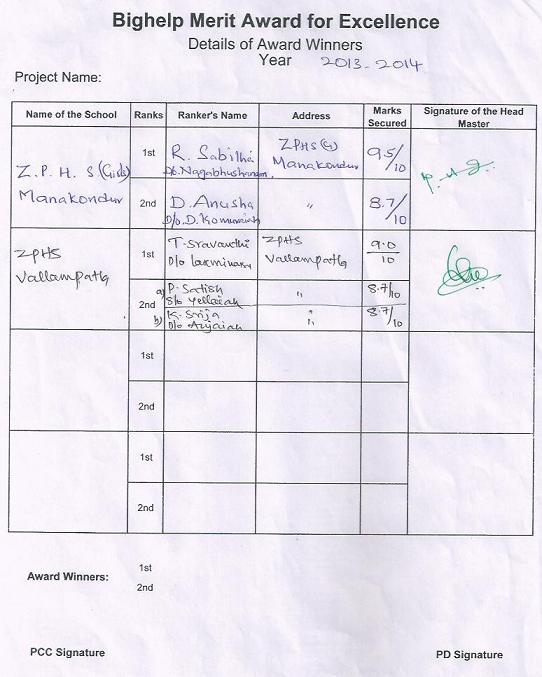 Bighelp Merit Award for Excellence
Details of Award Winners
Year 2013-2014
Project Name:
Name of the School Ranks Ranker's Name Address Marks Secured Signature of the Head Master
Z.P.H.S (Girls) Manakondur
1st R. Sabitha D/o. Nagabhushanam ZPHS(G) Manakondur 9.5/10
2nd D. Anusha D/o D. Komuraiah " 8.7/10
ZPHS Vallampatla
1st T. Sravanthi D/o Laxminarsu ZPHS Vallampatla 9.0/10
2nd a) P. Satish S/o Yellaiah " 8.7/10
b) K. Srija D/o Anjaiah " 8.7/10
1st
2nd
1st
2nd
Award Winners: 1st
2nd
PCC Signature PD Signature